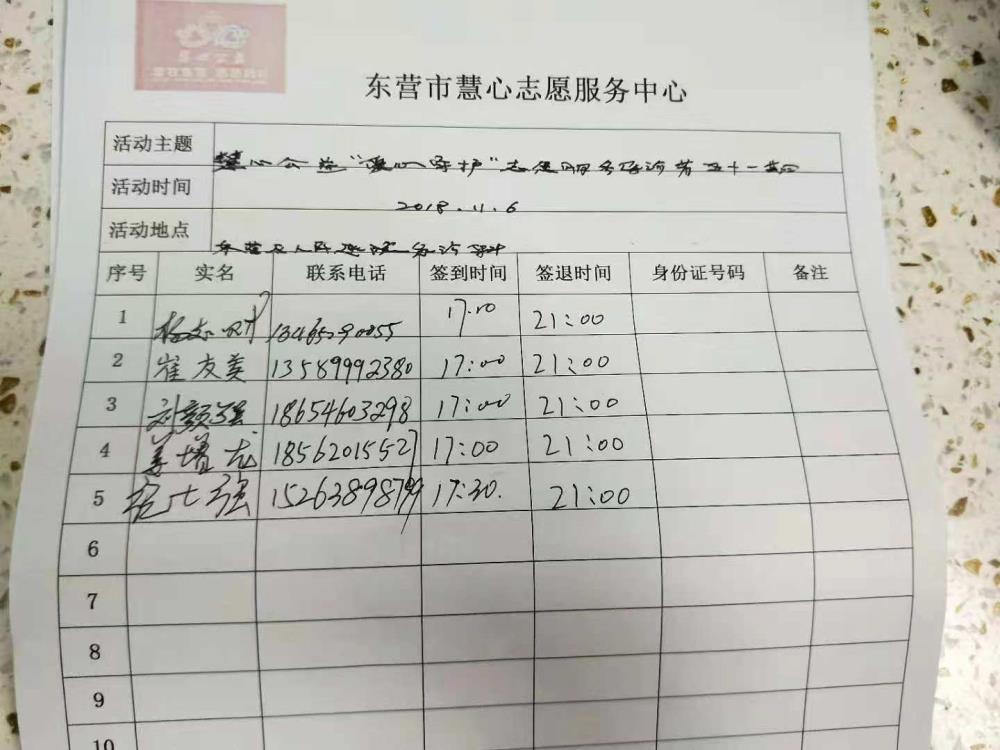 东营市慧心志愿服务中心
活动主题 慧心公益"爱心守护"志愿服务 第五十一期
活动时间 2018.11.6
活动地点 东营区人民医院
序号 实名 联系电话 签到时间 签退时间 身份证号码 备注
1 13465290055 17:00 21:00
2 崔友美 13589992380 17:00 21:00
3 刘颜强 18654603298 17:00 21:00
4 姜增龙 18562015527 17:00 21:00
5 强 15263898799 17:30. 21:00
6
7
8
9
10